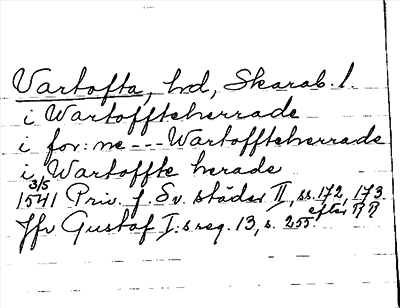 Vartofta, hd, Skarab. l.
i Wartoffteherrade
i for: ne --- Wartoffteherrade
i Wartoffte herade
3/5
1541 Priv. f. Sv. städer II, ss. 172, 173
efter RR
Jfr Gustaf I:s reg. 13, s. 255.